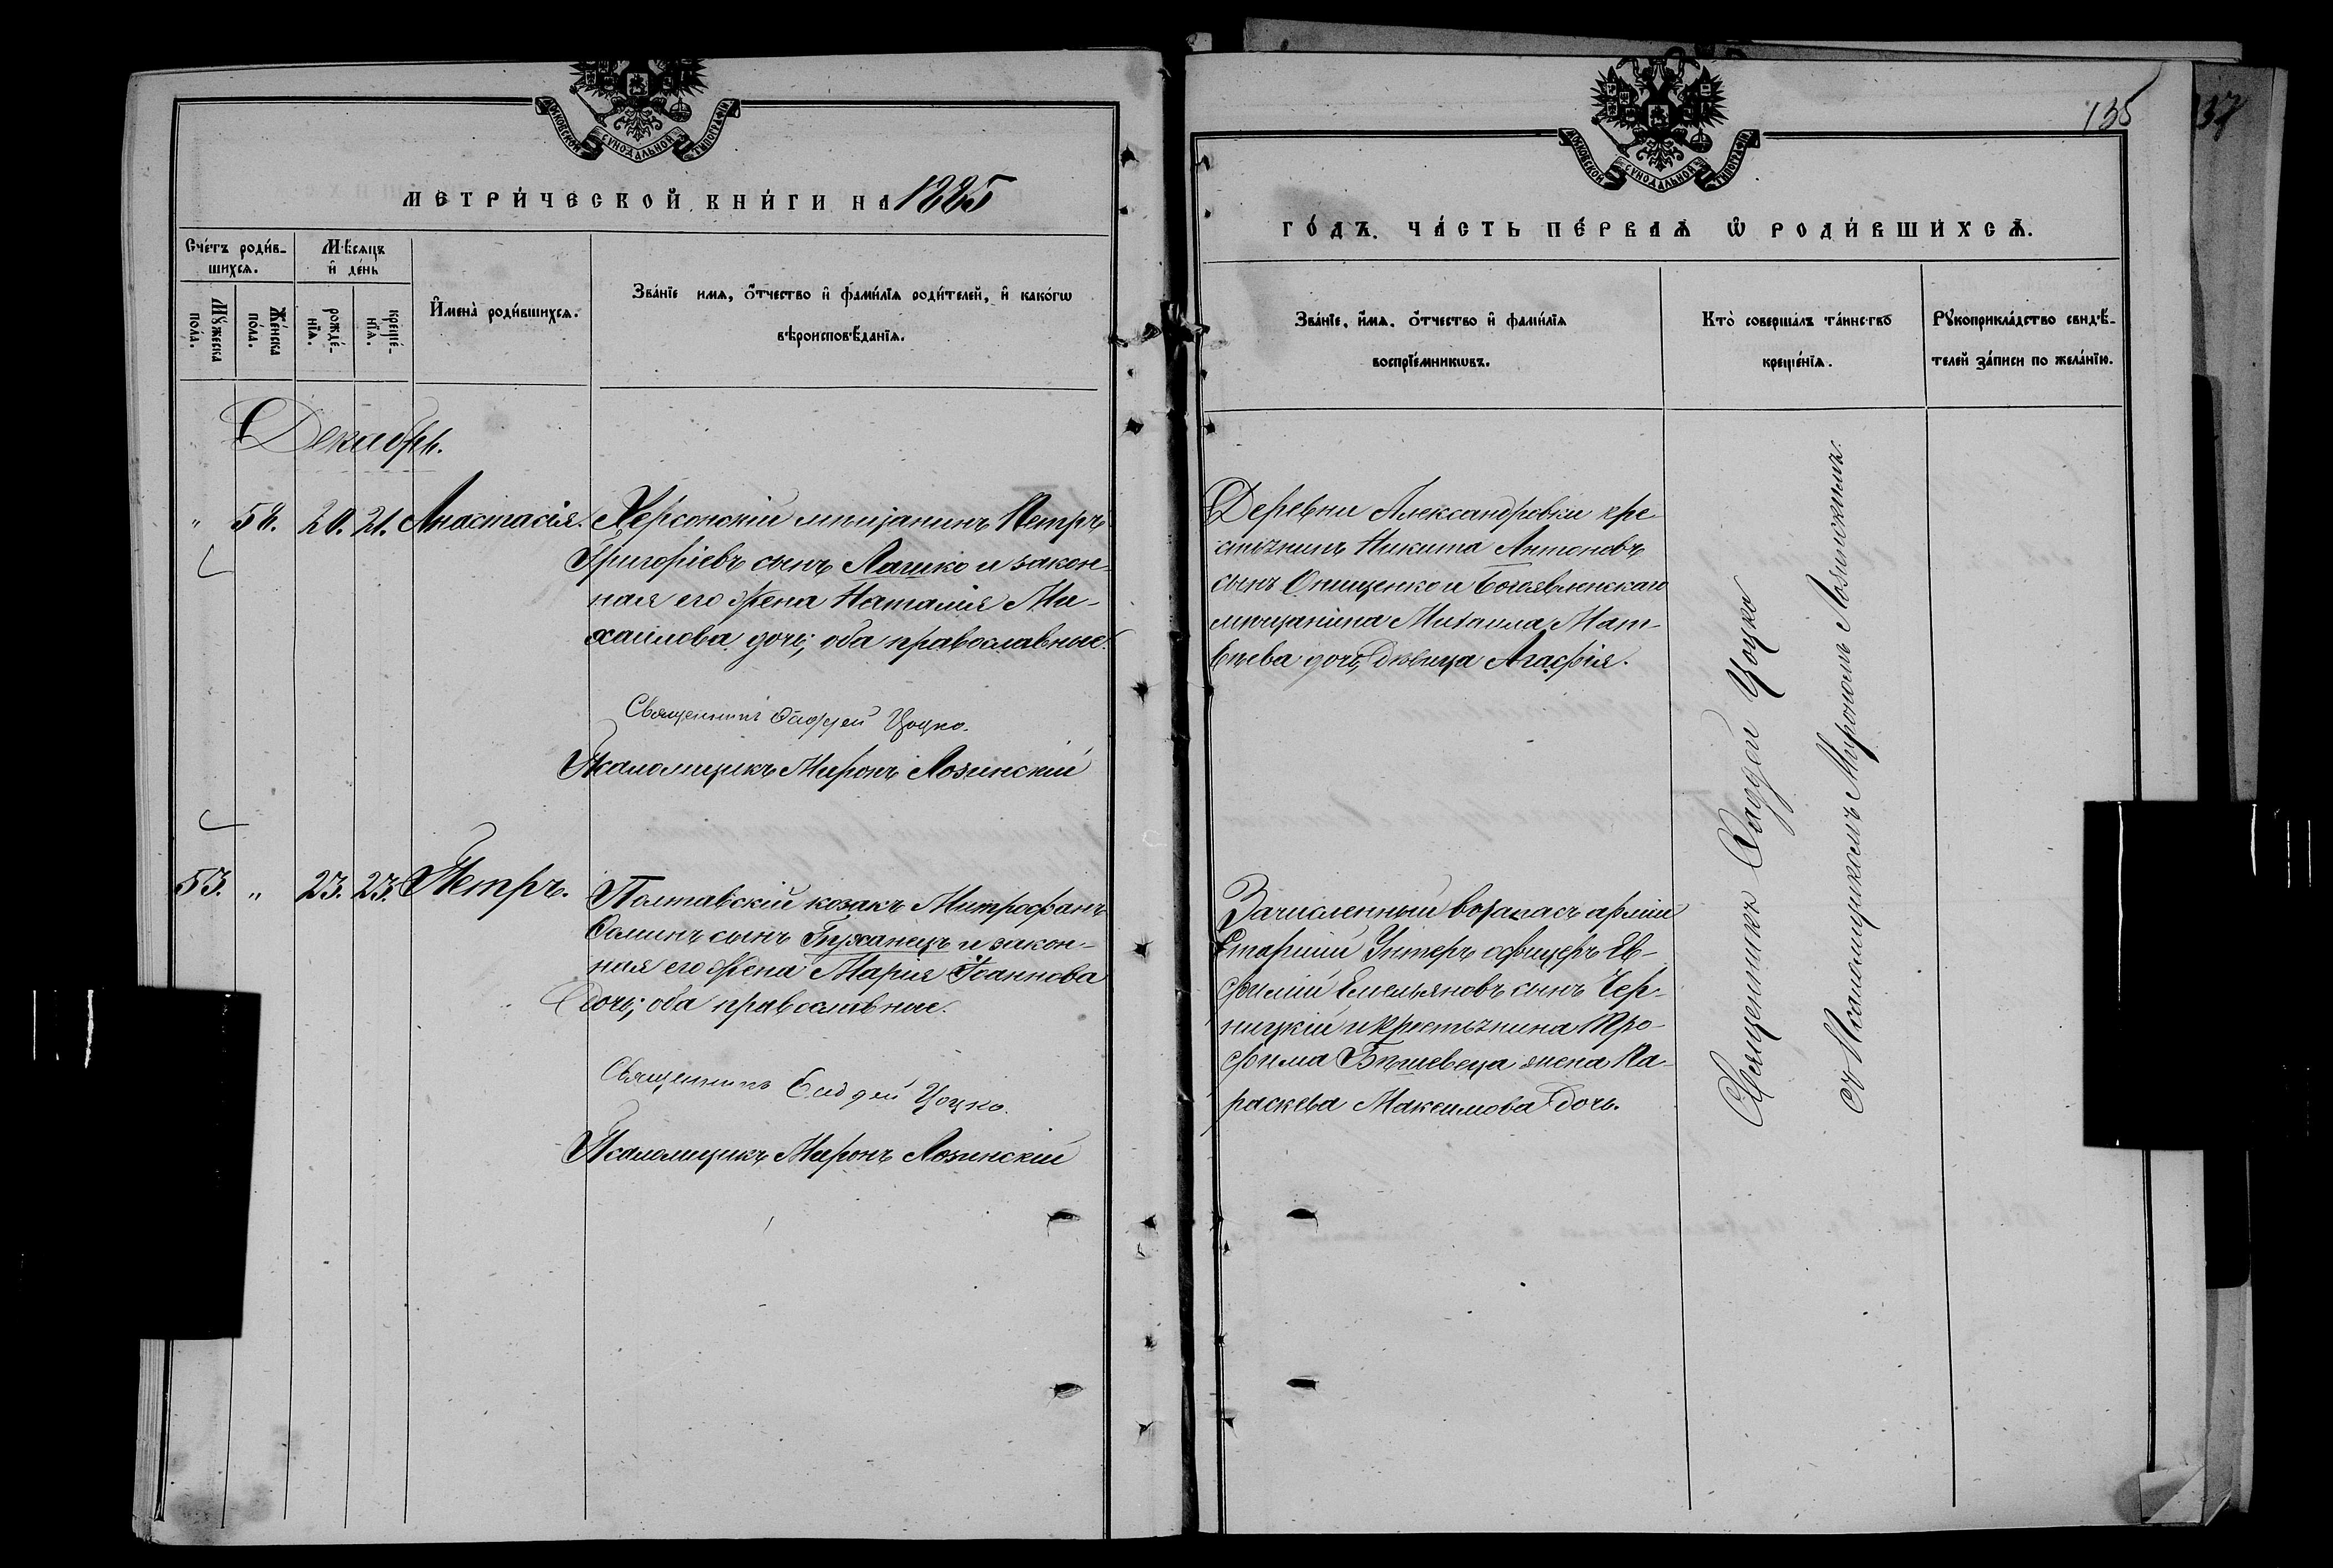 МОСКОВСКОЙ СѴНОДАЛЬНОЙ ТИПОГРАФІИ
МЕТРИ́ЧЕСКОЙ КНИ́ГИ НА 1885
Сче́тъ роди́в-
шихся.
Мѣсяцъ
и҆ де́нь
Мꙋ́жеска
по́ла.
Же́нска
по́ла.
рожде́-
нїя.
креще́-
нїя.
И҆мена̀ роди́вшихся.
Зва́нїе имя, ѻ҆́тчество и҆ фами́лїя роди́телей, и҆ како́гѡ
вѣроисповѣ́данїя.
Декабрь.
" 58. 20. 21. Анастасія.
Херсонскій мѣщанинъ Петръ
Григоріевъ сынъ Лашко и закон-
ная его жена Наталія Ми-
хаилова дочь; оба православные.
Священникъ Ѳаддей Цоцко.
Псаломщикъ Миронъ Лозинскій
53. " 23. 23. Петръ.
Полтавскій козакъ Митрофанъ
Ѳоминъ сынъ и закон-
ная его жена Марія Іоаннова
дочь; оба православные.
Священникъ Ѳаддей Цоцко.
Псаломщикъ Миронъ Лозинскій
135
37
МОСКОВСКОЙ СѴНОДАЛЬНОЙ ТИПОГРАФІИ
ГО́ДЪ. ЧА́СТЬ ПЕ́РВАѦ Ѡ҆ РОДИ́ВШИХСѦ.
Зва́нїе, и҆́мя, ѻ҆́тчество и҆ фами́лїя
воспрїе́мникѡвъ.
Кто̀ соверша́лъ та́инство
креще́нїя.
Рꙋкоприкла́дство свидѣ́-
телей за́писи по жела́нїю.
Деревни Александровки кре
стьянинъ Никита Антоновъ
сынъ Онищенко и Богоявленскаго
мѣщанина Михаила Мат-
вѣева дочь, дѣвица Агафія.
Зачисленный въ запасъ арміи
Старшій Унтеръ офицеръ Ев-
фимій Емельяновъ сынъ Чер-
ницкій и крестьянина Тро-
фима жена Па-
раскева Максимова дочь.
Священникъ Ѳаддей Цоцко
съ Псаломщикомъ Мирономъ Лозинскимъ.